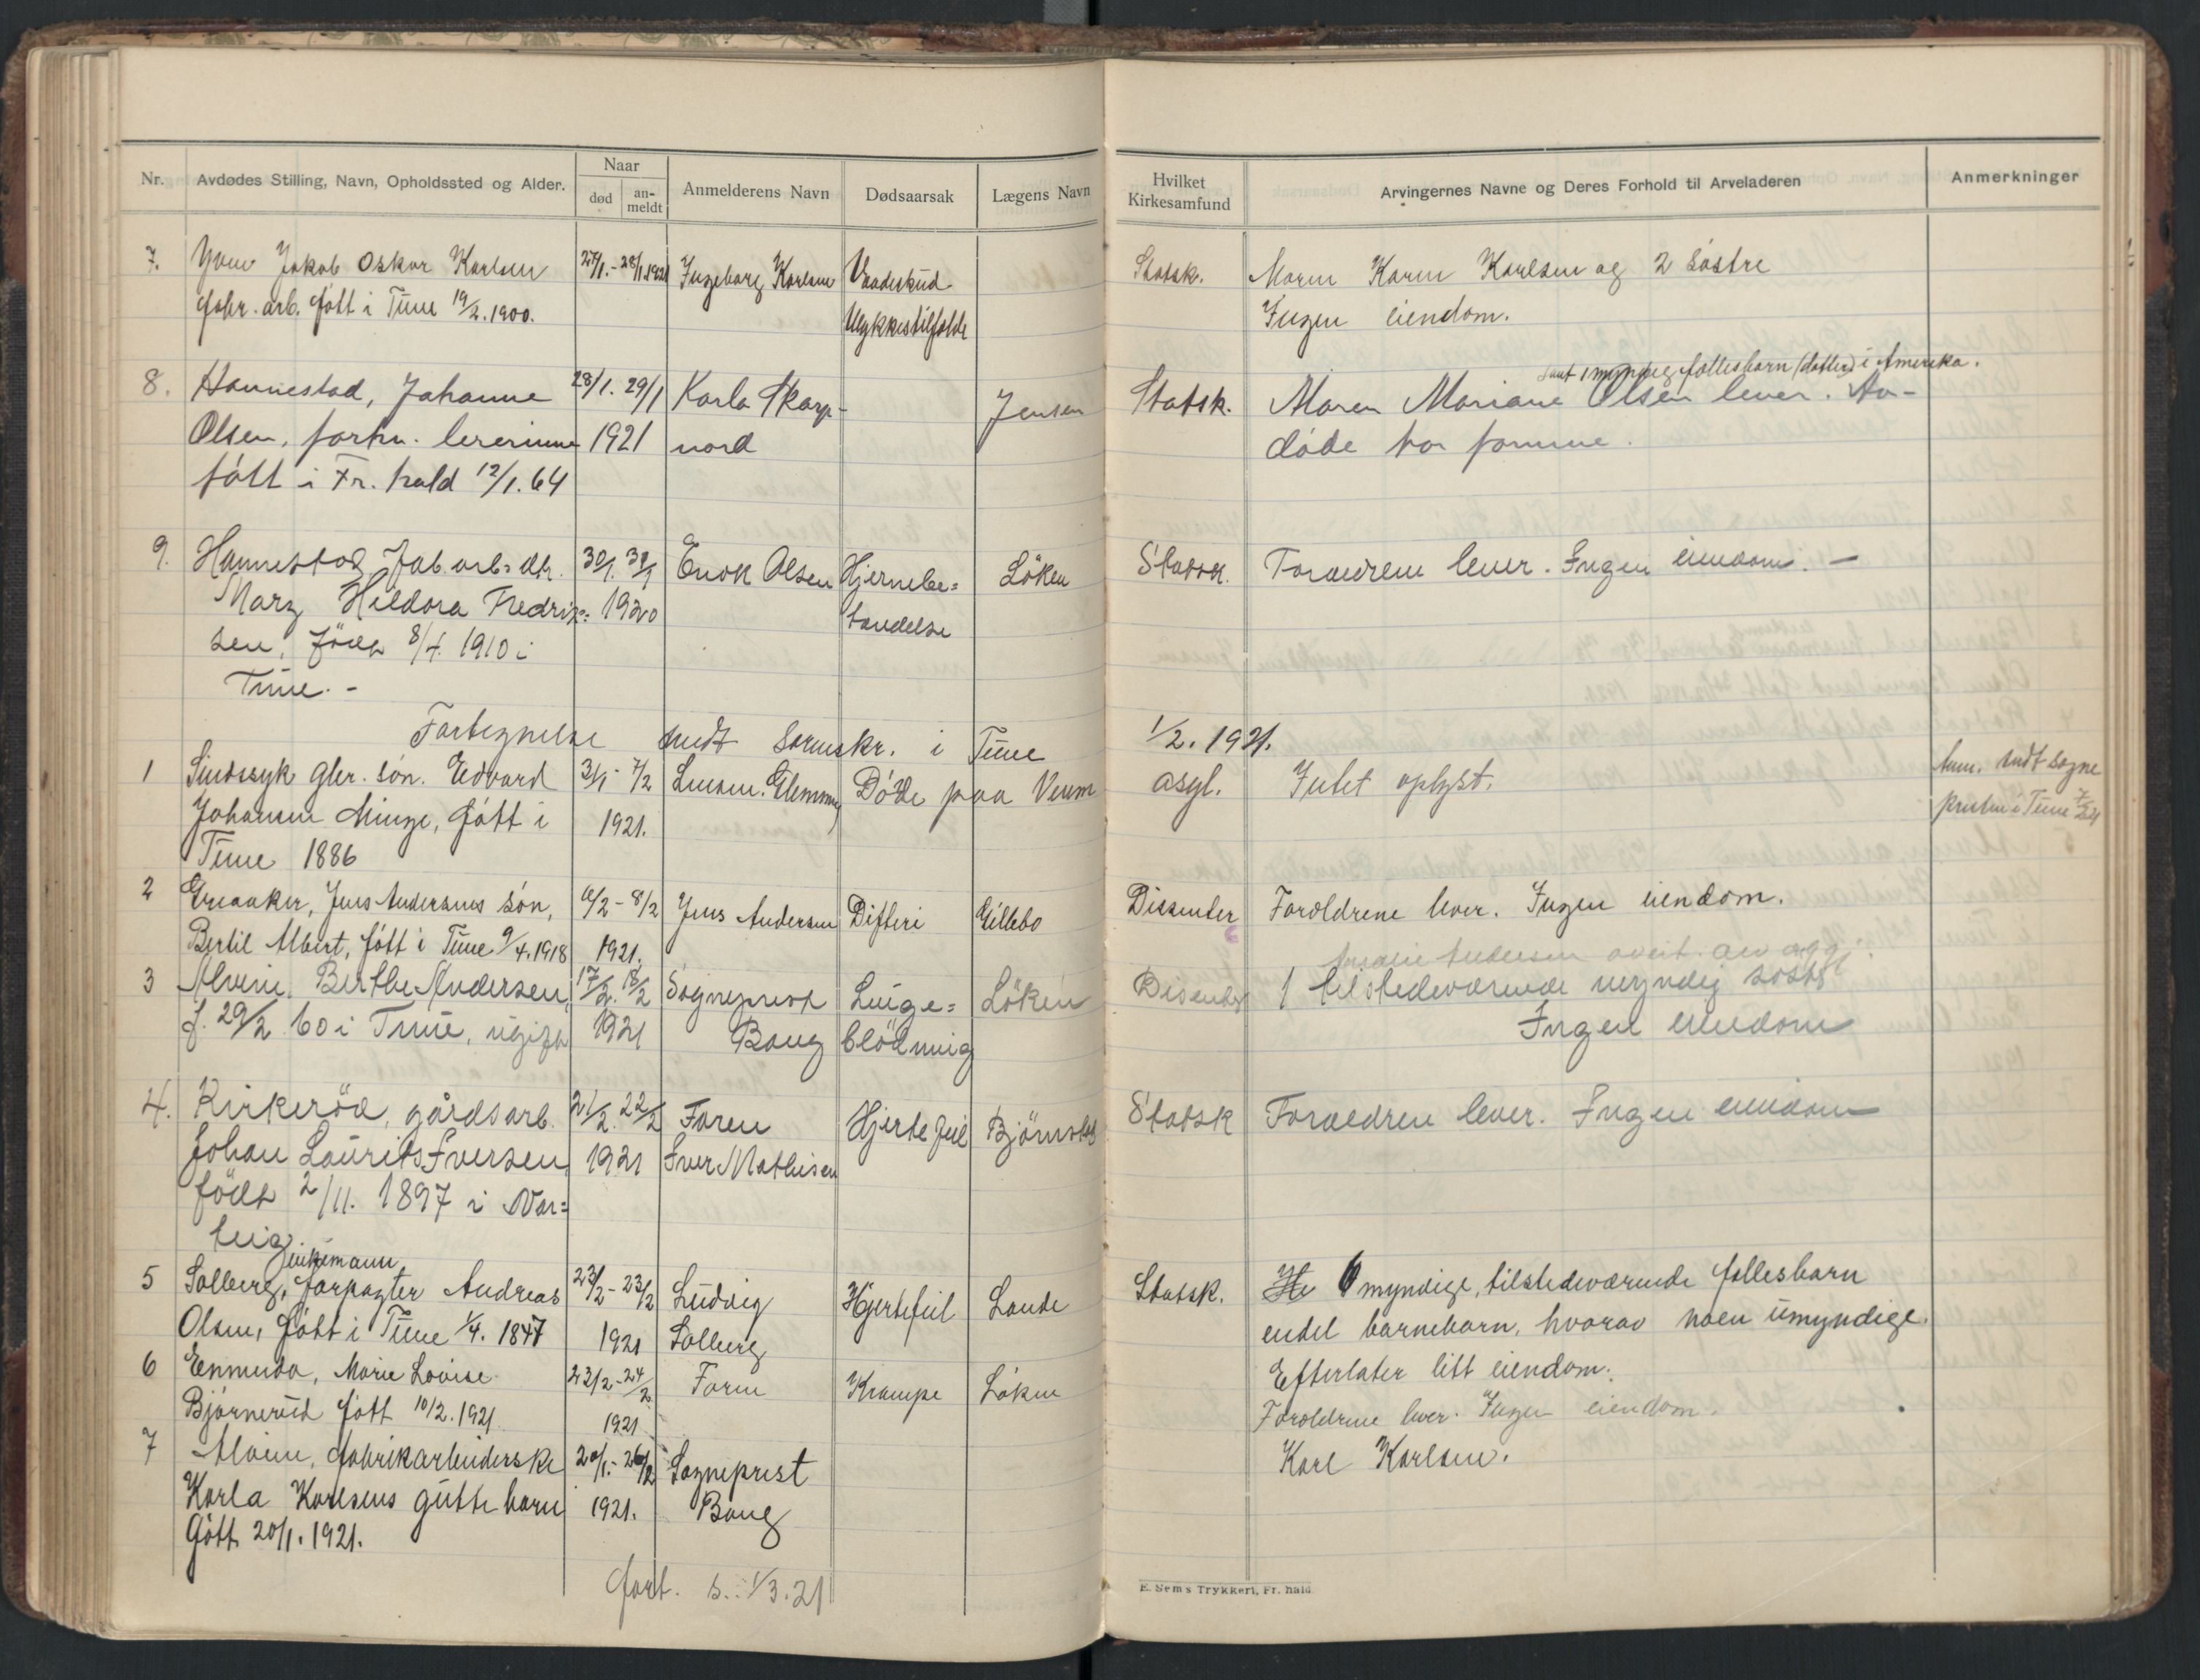 Nr.
Avdødes Stilling, Navn, Opholdssted og Alder.
Naar
død
an-
meldt
Anmelderens Navn
Dødsaarsak
Lægens Navn
Hvilket
Kirkesamfund
Arvingernes Navne og Deres Forhold til Arveladeren
Anmerkninger
7. Yven Jakob Oskar Karlsen 27/1.-28/1.1921 Ingeborg Karlsen Vaadeskud Statsk. Moren Karen Karlsen og 2 søstre
fabr. arb. født i Tune 19/2.1900. Ulykkestilfelde Ingen eiendom.
samt 1 myndig fællesbarn (datter) i Amerika.
8. Hannestad, Johanne 28/1. 29/1 Karla Skarp- Jensen Statsk. Maren Mariane Olsen lever. Av-
Olsen, forhv. lererinne 1921 nord døde har formue.
født i Fr. hald 12/1.64
9. Hannestad, Fab. arb= dtr. 30/1. 31/1 Enok Olsen Hjernebe= Löken Statsk. Foraeldrene lever. Ingen eiendom. -
Mary Hildora Fredrik= 1920 tændelse
sen, Född 8/4. 1910 i
Tune. -
Fortegnelse sendt sorenskr. i Tune 1/2. 1921.
1 gbr. søn. Edvard 3/1- 7/2 Lensm. Glemmen Døde paa Veum asyl. Intet oplyst. Anm. sendt sogne
Johansen Minge, født i 1921. presten i Tune 7/2 21
Tune 1886
2 Greaaker, Jens Andersens søn, 6/2-8/2 Jens Andersen Difteri Gillebo Dissenter Foreldrene lever. Ingen eiendom.
Bertil Albert, født i Tune 9/4.1918 1921.
3 Alvim, Berthe Andersen, 17/2. 18/2 Sogneprest Lunge= Löken Disenter 1 tilstedeværende myndig søster
f. 29/2 60 i Tune, ugift 1921 Baug blödning Ingen eiendom
4. Kirkeröd, gårdsarb. 21/2. 22/2 Faren Hjertefeil Björnstad Statsk Foraeldren lever. Ingen eiendom
Johan Laurits Iversen, 1921 Iver Mathisen
född 2/11. 1897 i Var=
teig.
enkemann
5 Solberg, forpagter Andreas 23/2-23/2 Ludvig Hjertefeil Lande Statsk. 6 myndige, tilstedeværende fellesbarn
Olsen, født i Tune 1/4. 1847 1921 Solberg endel barnebarn, hvorav noen umyndige.
Efterlater litt eiendom.
6 Enmuda, Marie Lovise 23/2-24/2 Faren Krampe Løken Foreldrene lever. Ingen eiendom.
Bjørnerød født 10/2.1921 1921
7 Alvim, fabrikarbeiderske 20/1.-26/2 Sogneprest Karl Karlsen.
Karla Karlsens guttebarn 1921. Baug
født 20/1.1921.
fort. s. 1/3.21
E. Sem's Trykkeri, Fr. hald